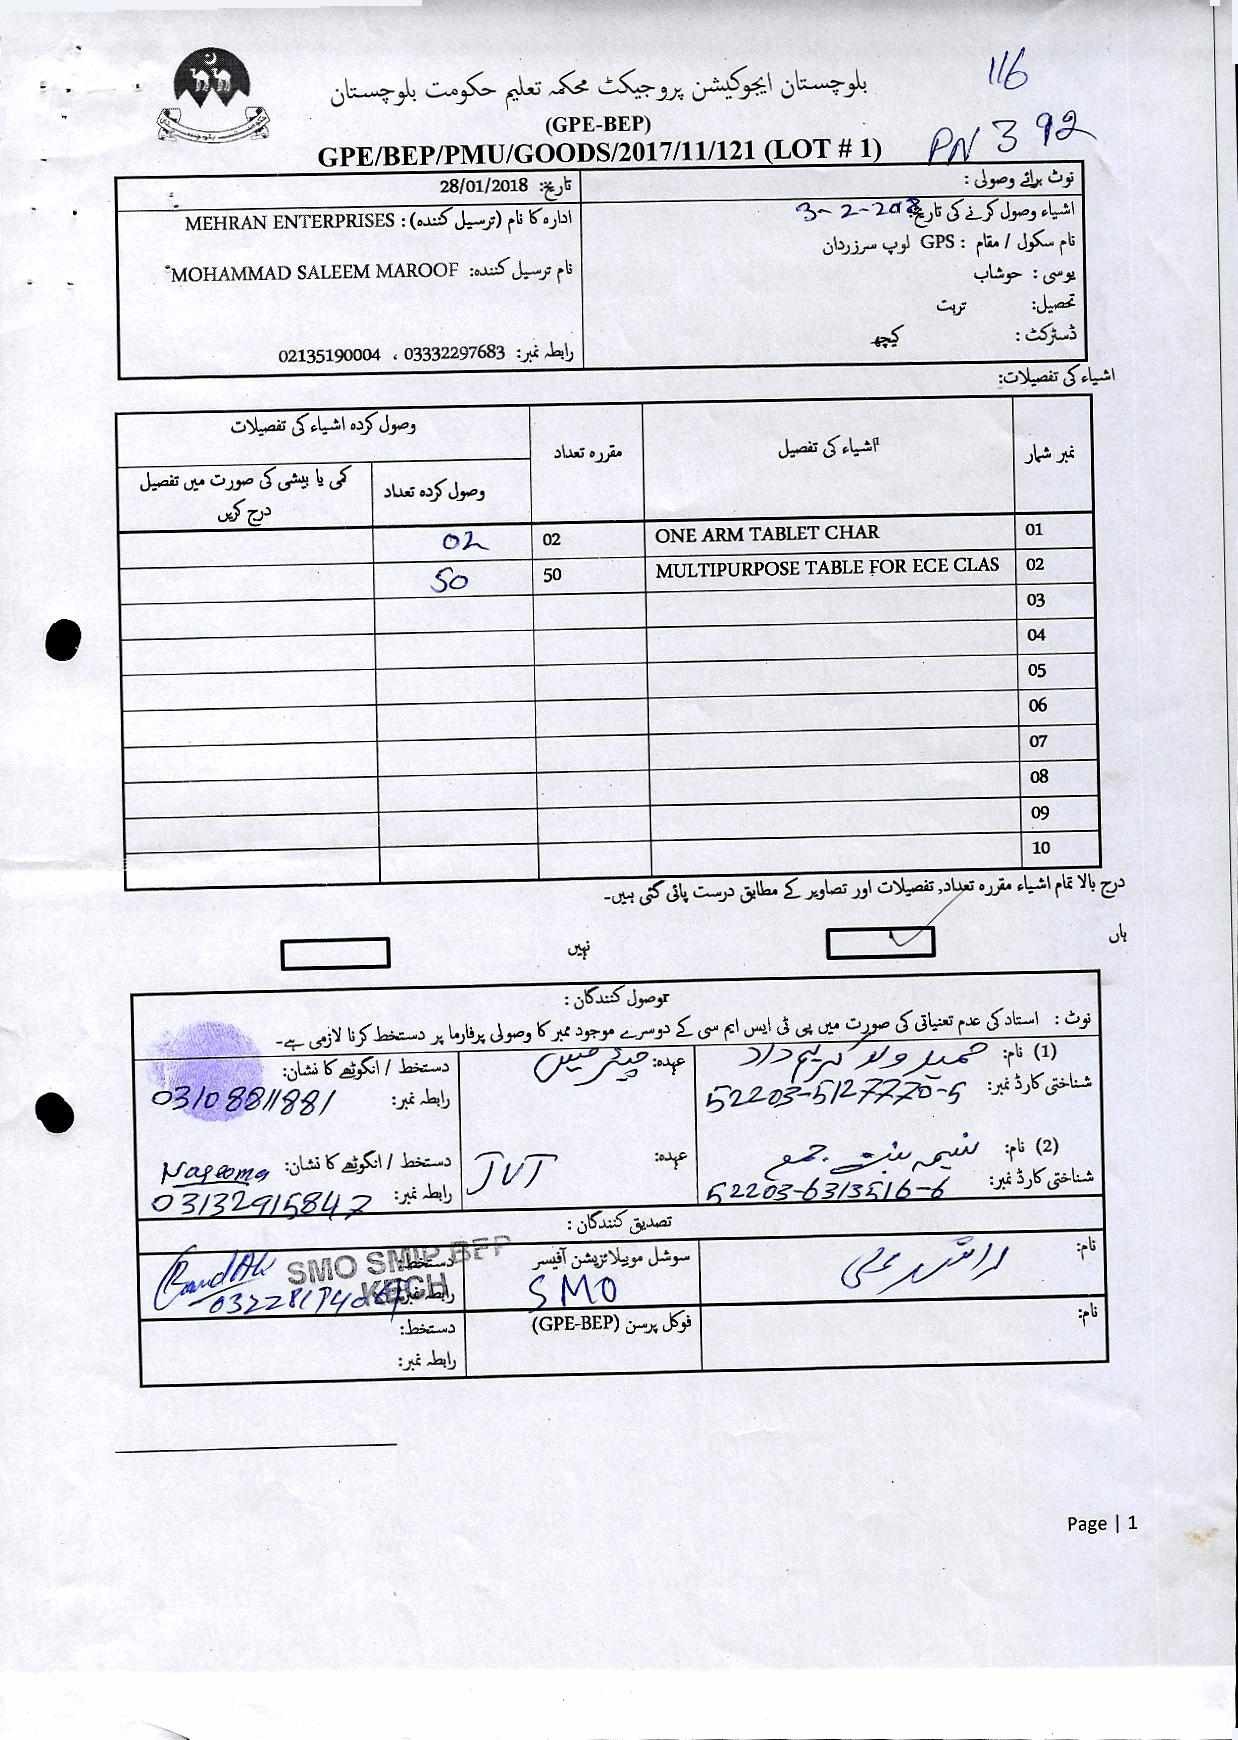 116
بلوچستان ایجوکیشن پروجیکٹ محکمہ تعلیم حکومت بلوچستان
(GPE-BEP)
GPE/BEP/PMU/GOODS/2017/11/121 (LOT # 1)
PN 392
نوٹ برائے وصولی :
اشیاء وصول کرنے کی تاریخ: 3-2-2018
نام سکول / مقام : GPS لوپ سرزردان
یوسی : حوشاب
تحصیل: تربت
ڈسٹرکٹ : کیچ
تاریخ: 28/01/2018
ادارہ کا نام (ترسیل کنندہ) : MEHRAN ENTERPRISES
نام ترسیل کنندہ: MOHAMMAD SALEEM MAROOF
رابطہ نمبر: 03332297683 ، 02135190004
اشیاء کی تفصیلات:
نمبر شمار اشیاء کی تفصیل مقررہ تعداد وصول کردہ اشیاء کی تفصیلات
وصول کردہ تعداد کمی یا بیشی کی صورت میں تفصیل درج کریں
01 ONE ARM TABLET CHAR 02 02
02 MULTIPURPOSE TABLE FOR ECE CLAS 50 50
03
04
05
06
07
08
09
10
درج بالا تمام اشیاء مقررہ تعداد, تفصیلات اور تصاویر کے مطابق درست پائی گئی ہیں۔
ہاں نہیں
وصول کنندگان :
نوٹ : استاد کی عدم تعنیاتی کی صورت میں پی ٹی ایس ایم سی کے دوسرے موجود ممبر کا وصولی پرفارما پر دستخط کرنا لازمی ہے۔
(1) نام: حمید ولد کریم داد عہدہ: چیئرمین دستخط / انگوٹھے کا نشان:
شناختی کارڈ نمبر: 52203-5127770-5 رابطہ نمبر: 03108811881
(2) نام: نسیمہ بنت جمعہ عہدہ: JVT دستخط / انگوٹھے کا نشان: Naseema
شناختی کارڈ نمبر: 52203-6313516-6 رابطہ نمبر: 03132915847
تصدیق کنندگان :
نام: سوشل موبیلائزیشن آفیسر دستخط:
SMO رابطہ نمبر:
SMO SMIP BEP
KECH
نام: فوکل پرسن (GPE-BEP) دستخط:
رابطہ نمبر:
Page | 1